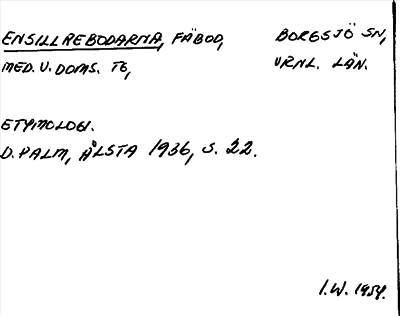 ENSILLREBODARNA, FÄBOD, BORGSJÖ SN,
MED. V. DOMS. TG, VRNL. LÄN.
ETYMOLOGI.
D. PALM, ÅLSTA 1936, S. 22.
I.W. 1954.